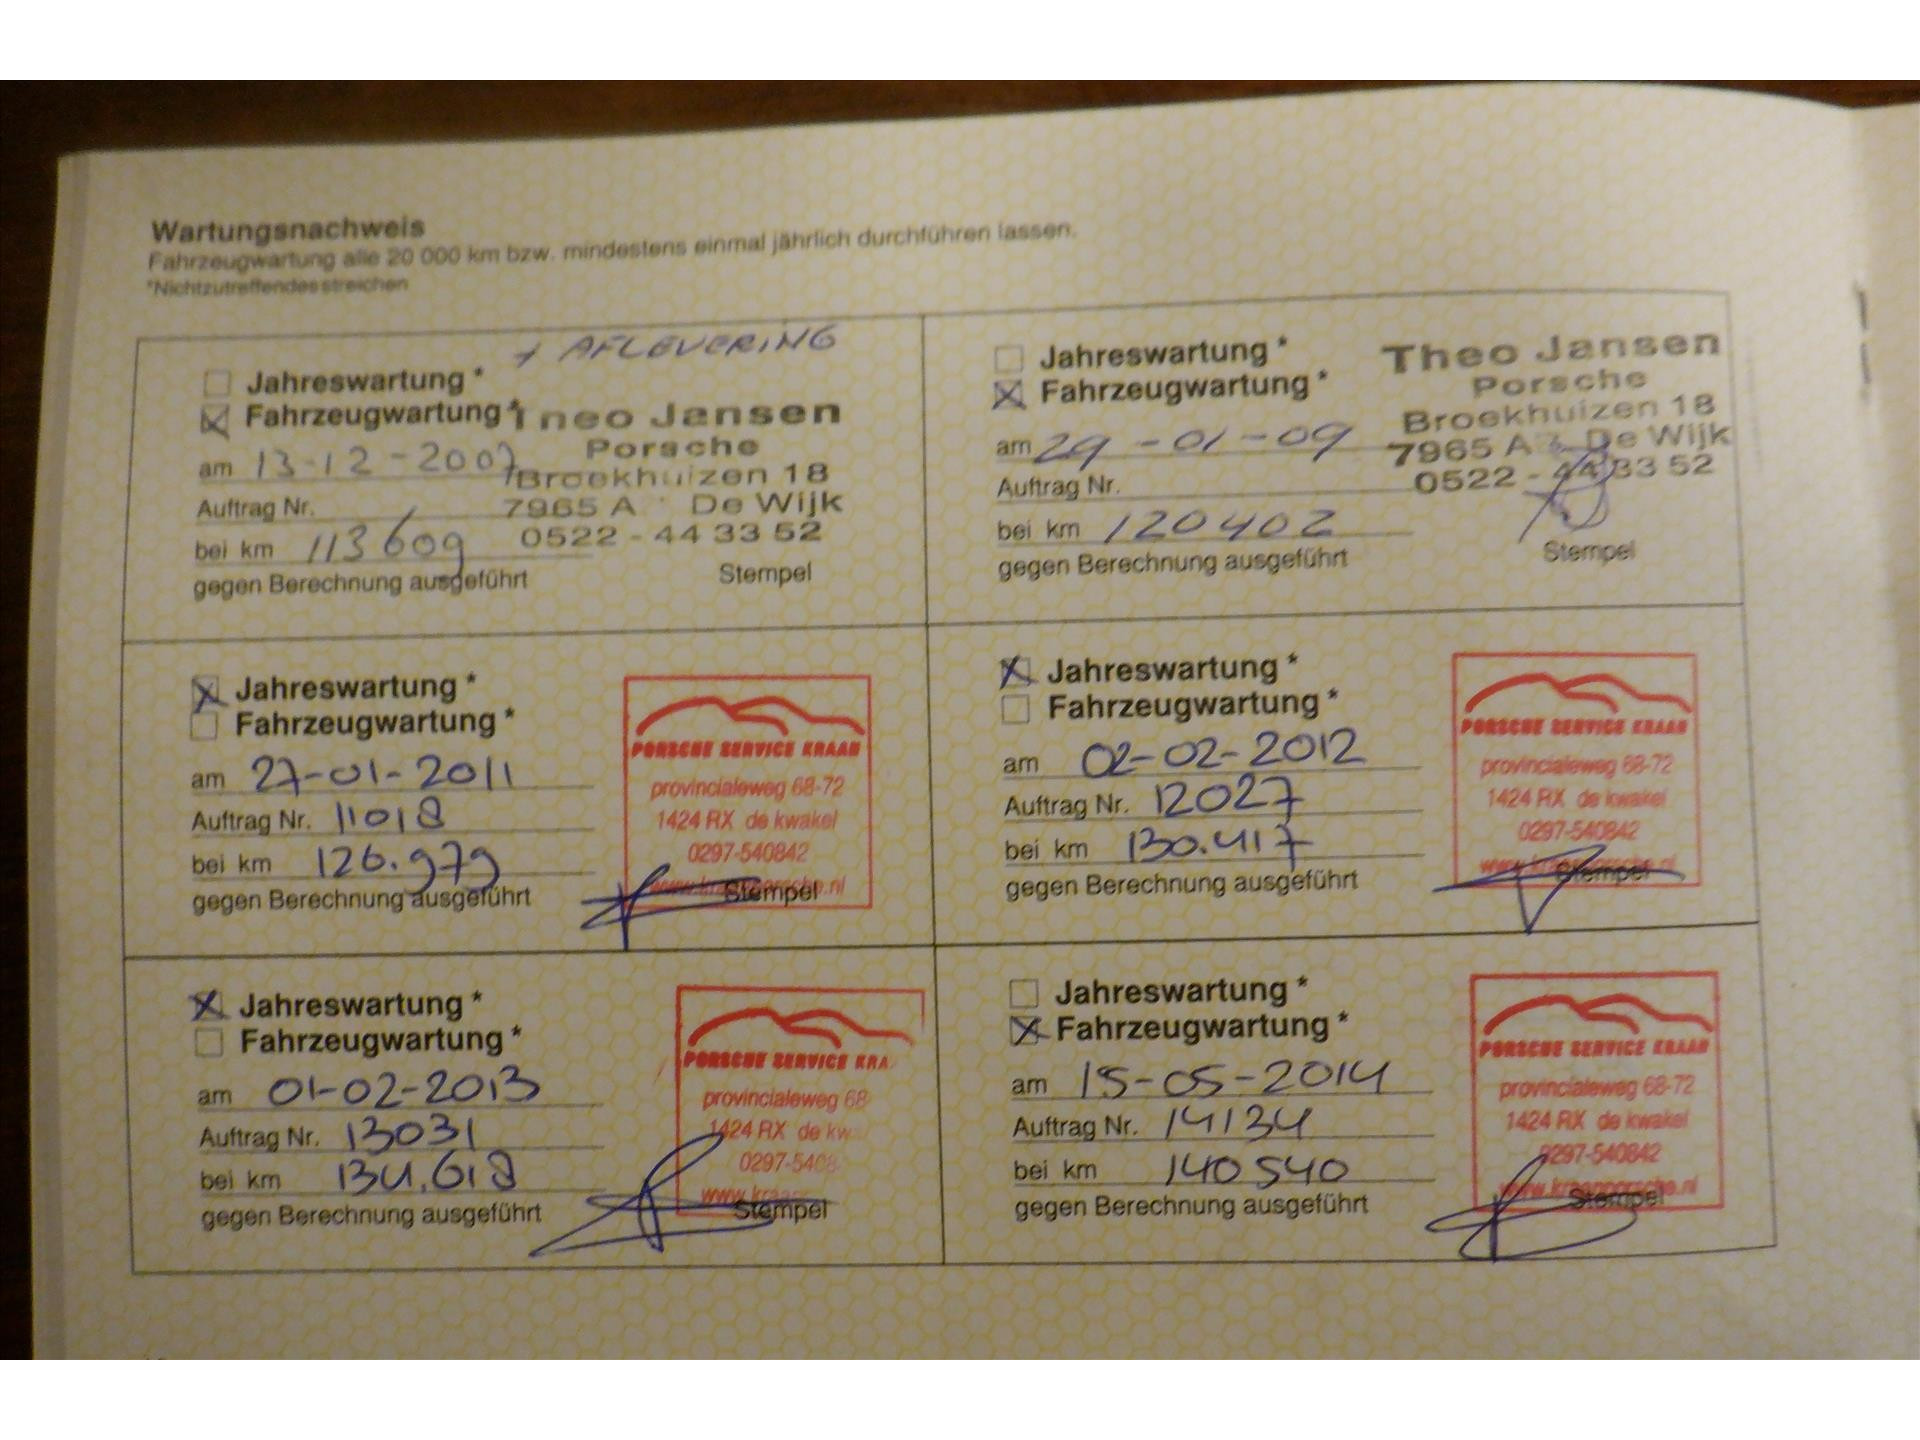 Wartungsnachweis
Fahrzeugwartung alle 20 000 km bzw. mindestens einmal jährlich durchführen lassen.
*Nichtzutreffendes streichen
+ AFLEVERING
Jahreswartung *
Fahrzeugwartung *
am 13-12-2007
Auftrag Nr.
bei km 113609
gegen Berechnung ausgeführt
Theo Jansen
Porsche
Broekhuizen 18
7965 A De Wijk
0522 - 44 33 52
Stempel
Jahreswartung *
Fahrzeugwartung *
am 29-01-09
Auftrag Nr.
bei km 120402
gegen Berechnung ausgeführt
Theo Jansen
Porsche
Broekhuizen 18
7965 A De Wijk
0522 - 44 33 52
Stempel
Jahreswartung *
Fahrzeugwartung *
am 27-01-2011
Auftrag Nr. 11018
bei km 126.979
gegen Berechnung ausgeführt
PORSCHE SERVICE KRAAN
provincialeweg 68-72
1424 RX de kwakel
0297-540842
www.kraanporsche.nl
Stempel
Jahreswartung *
Fahrzeugwartung *
am 02-02-2012
Auftrag Nr. 12027
bei km 130.417
gegen Berechnung ausgeführt
PORSCHE SERVICE KRAAN
provincialeweg 68-72
1424 RX de kwakel
0297-540842
www.kraanporsche.nl
Stempel
Jahreswartung *
Fahrzeugwartung *
am 01-02-2013
Auftrag Nr. 13031
bei km 134.618
gegen Berechnung ausgeführt
PORSCHE SERVICE KRA
provincialeweg 68
1424 RX de kw
0297-5408
www.kraan
Stempel
Jahreswartung *
Fahrzeugwartung *
am 15-05-2014
Auftrag Nr. 14134
bei km 140540
gegen Berechnung ausgeführt
PORSCHE SERVICE KRAAN
provincialeweg 68-72
1424 RX de kwakel
0297-540842
www.kraanporsche.nl
Stempel